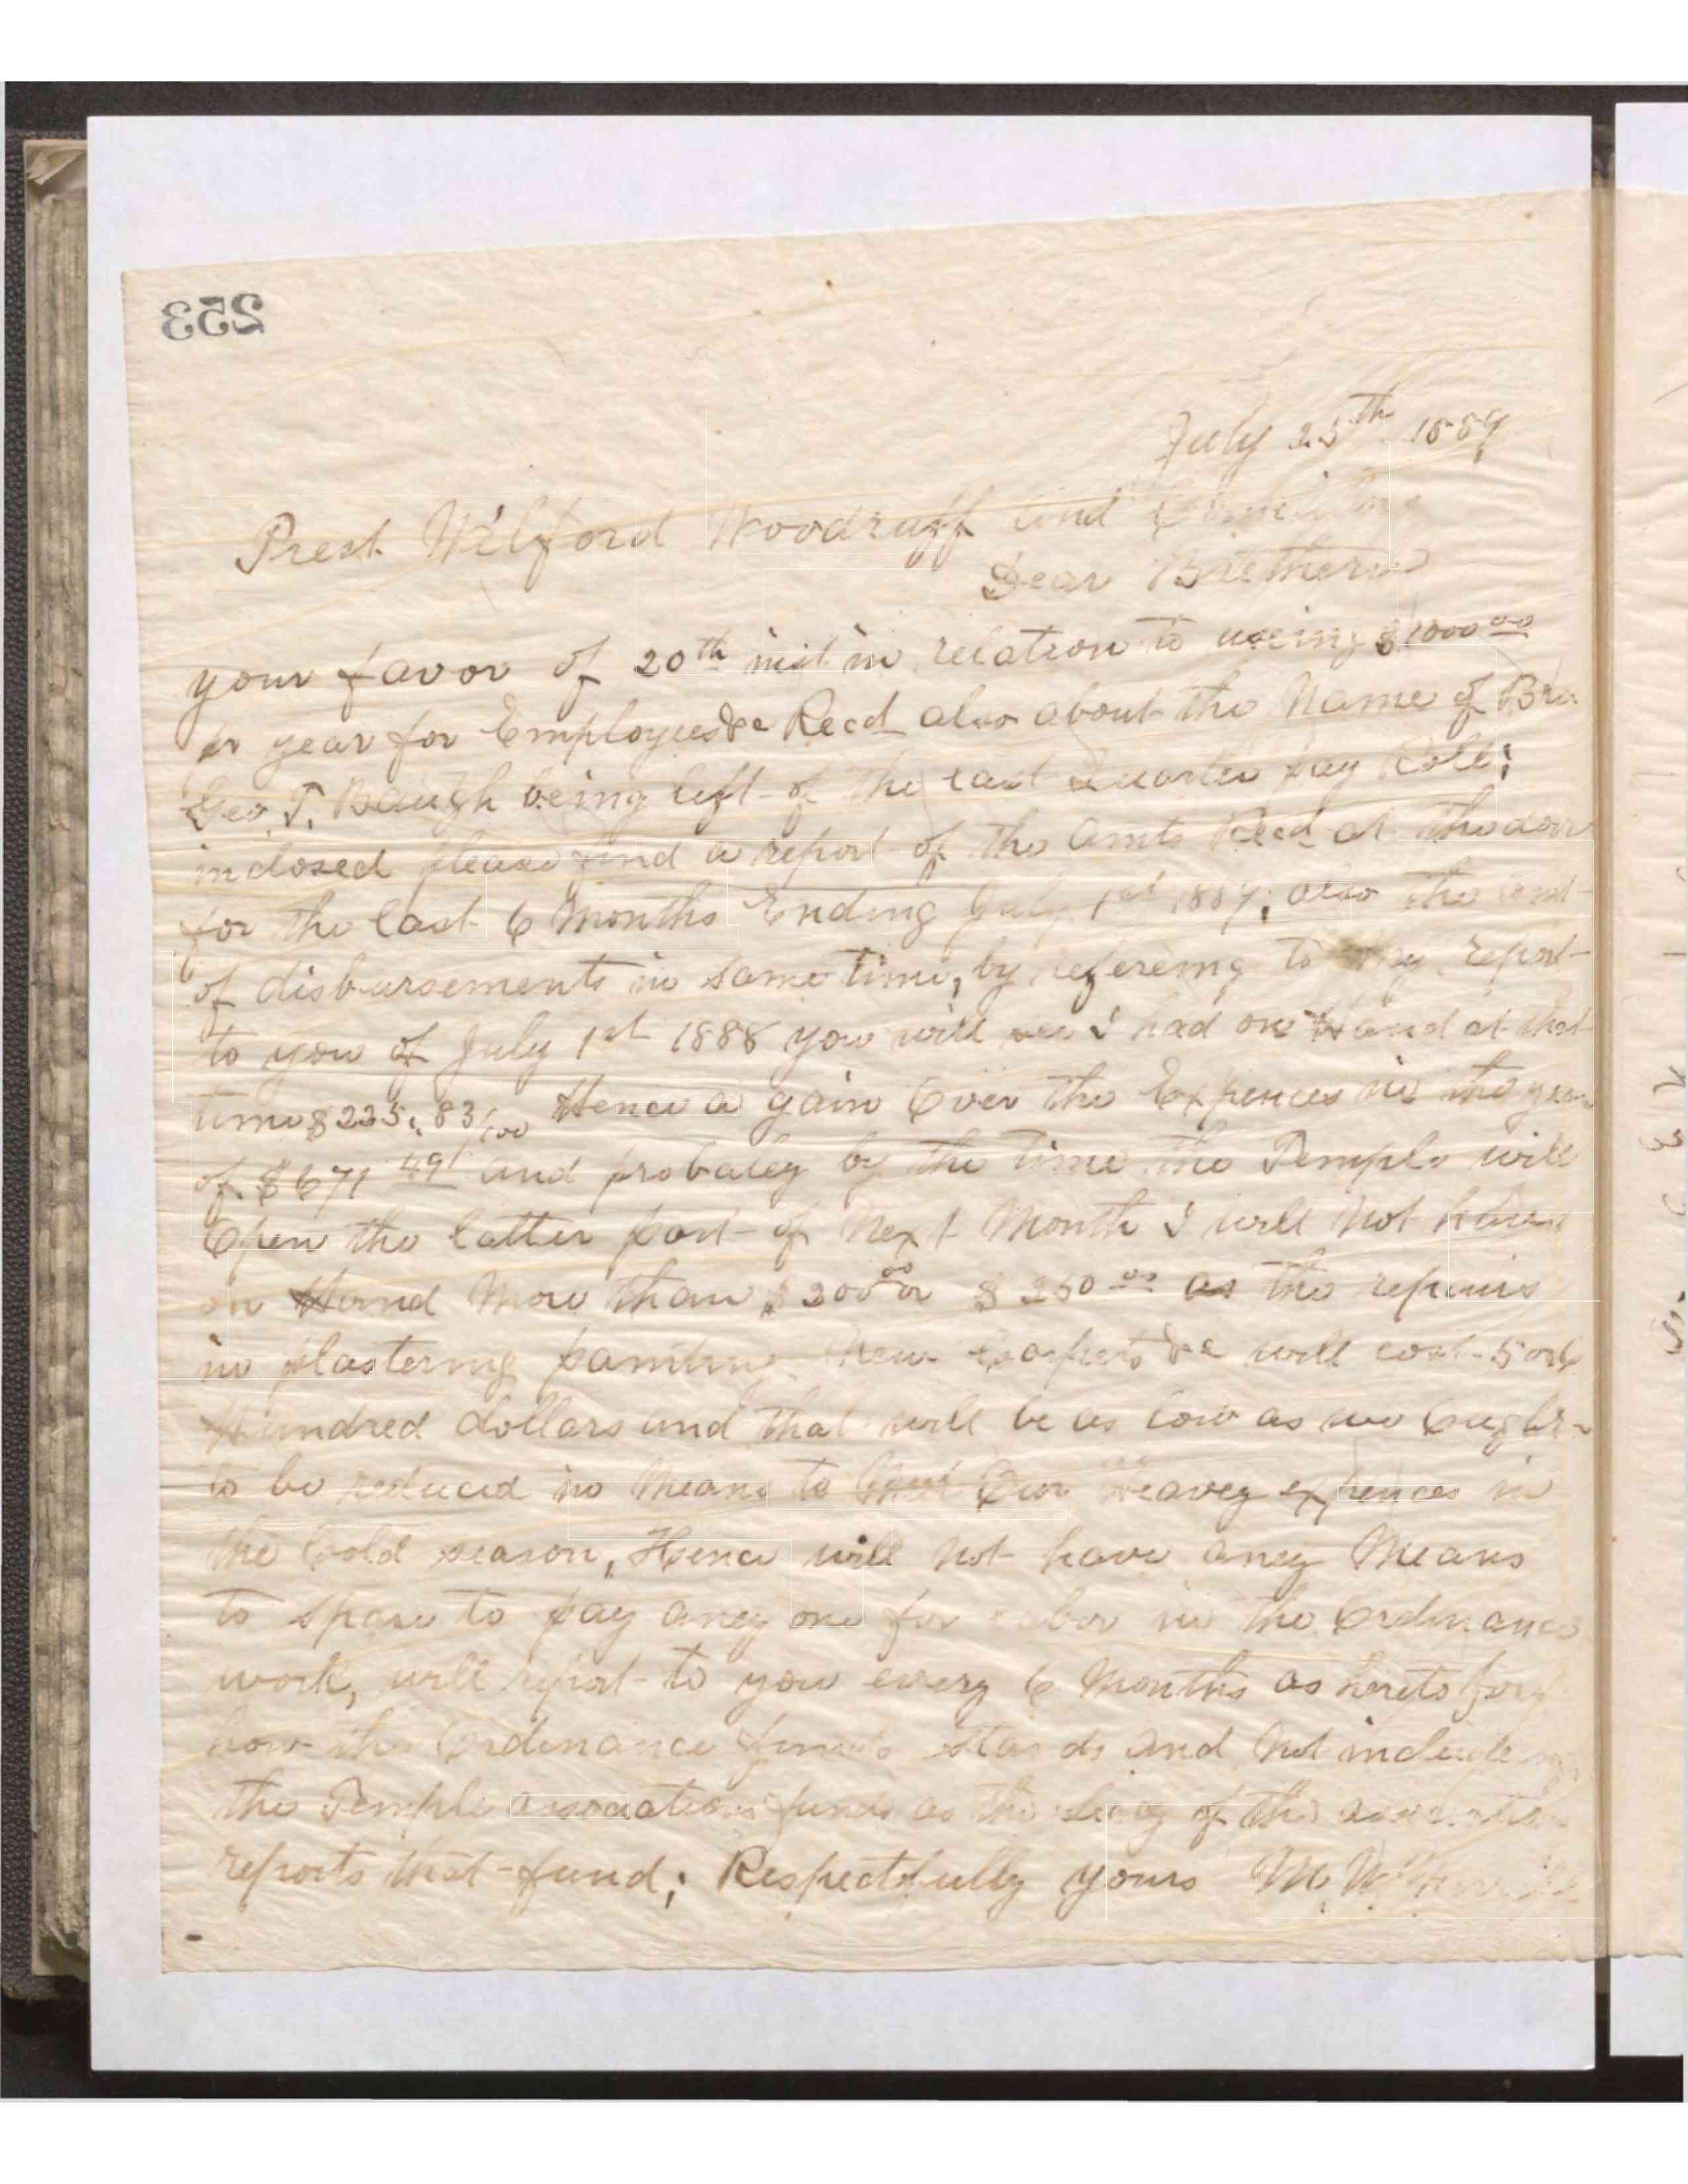 253
July 25th 1889
Prest. Wilford Woodruff and
Dear Brethern
your favor of 20th inst in relation to useing $1000.00
pr year for Employees &c Recd also about the Name of Bro
Geo. T. Baugh being left of the last Quarter pay Roll;
inclosed please find a report of the amts Recd at the door
for the last 6 Months Ending July 1st 1889; also the amt
of disbursements in same time, by refereing to my report
to you of July 1st 1888 you will see I had on Hand at that
time $225.83/100 Hence a gain Over the Expences in the year
of $671 49/ and probaley by the time the Temple will
Open the latter part of Next Month I will Not have
on Hand More than $200.00 or $250.00 as the repairs
in plastering painting New Carpets &c will cost 5 or 6
Hundred dollars and that will be as low as we Ought
to be reduced in Means to Meet Our Heavey expences in
the Cold season, Hence will Not have aney Means
to spare to pay aney one for labor in the Ordinance
work, will report to you every 6 Months as heretofore
how the Ordinance funds stands and Not including
the Temple association funds as the Secy of the association
reports that fund; Respectfully yours M. W. Merrill